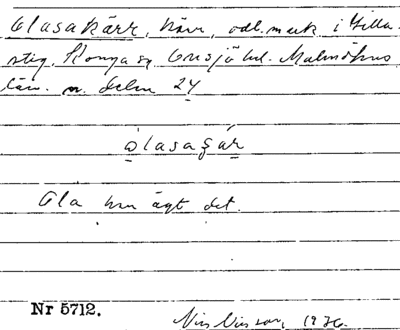 Olasakärr, kärr, odl. mark i Hilla-
stig, Konga sn Onsjö hd. Malmöhus
län. n. delen 24
o̱lasaʒár
Ola har ägt det.
Nr 5712.
Nils Nilsson, 1936.